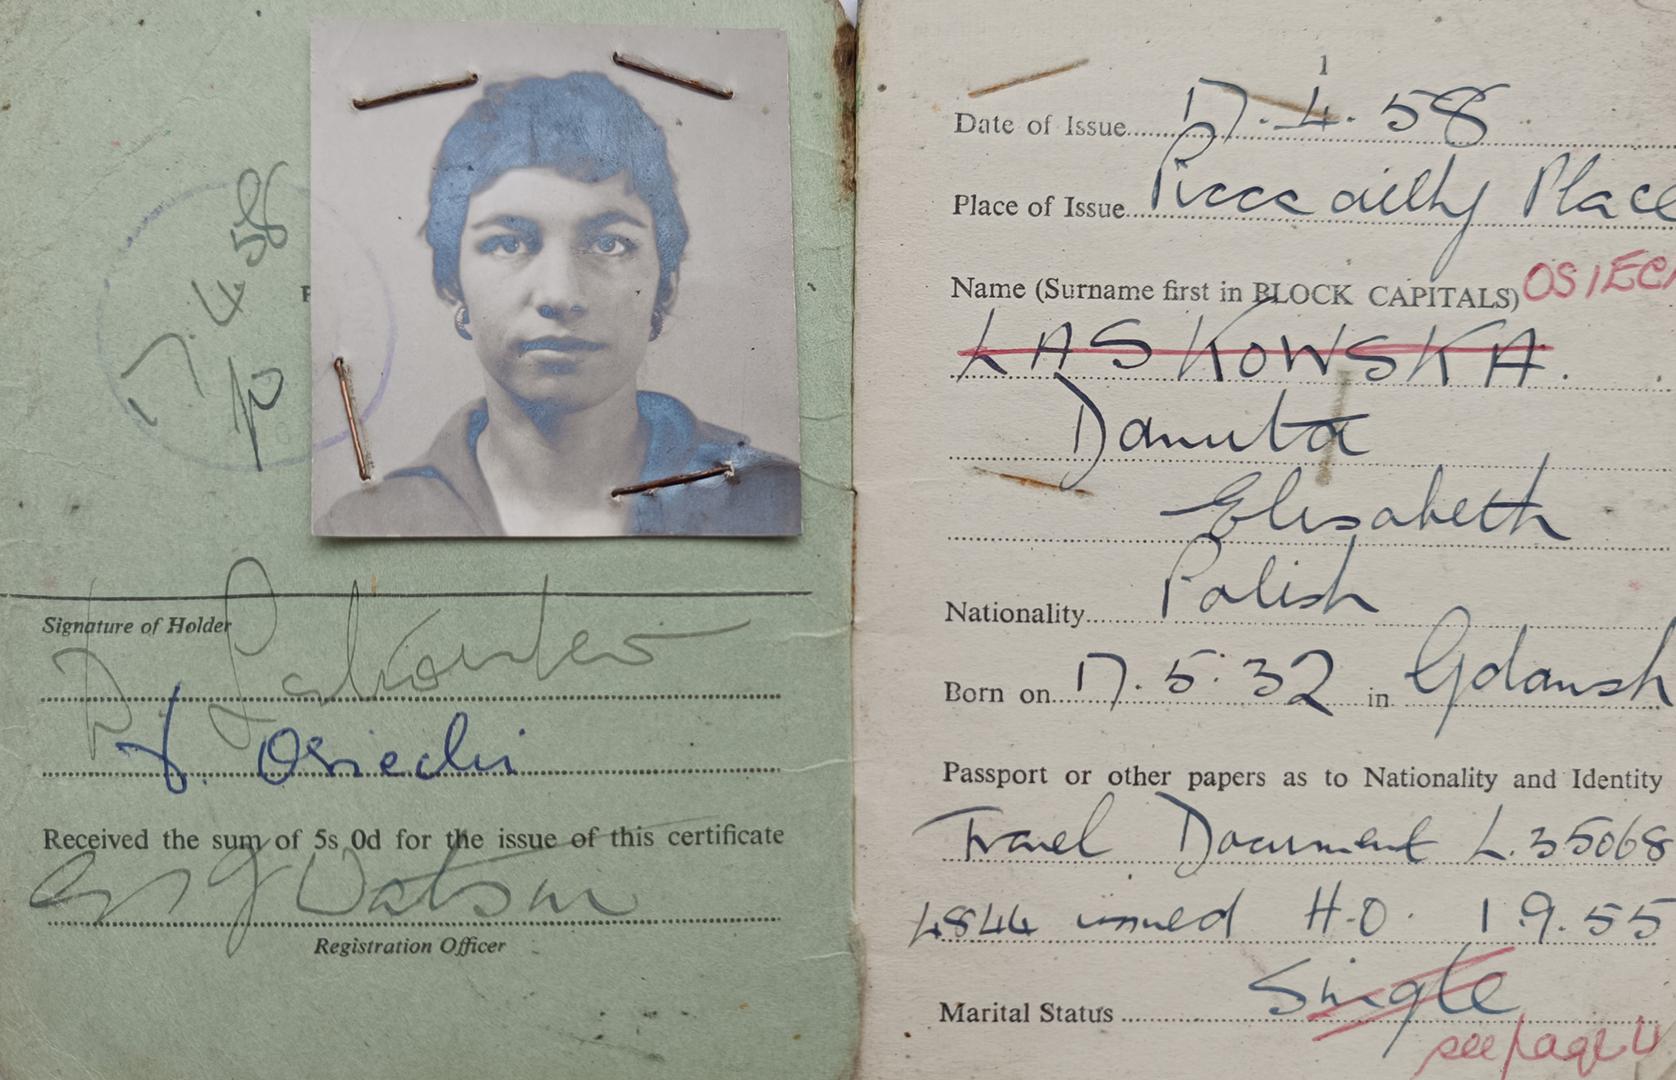 17.4.58
Signature of Holder
D. Laskowska
D. Osiecki
Received the sum of 5s 0d for the issue of this certificate
Watson
Registration Officer
1
Date of Issue 17.4.58
Place of Issue Piccadilly Place
Name (Surname first in BLOCK CAPITALS) OSIECK
LASKOWSKA.
Danuta
Elisabeth
Nationality Polish
Born on 17.5.32 in Gdansk
Passport or other papers as to Nationality and Identity
Travel Document L.35068
4844 issued H.O. 1.9.55
Marital Status Single
see page 4